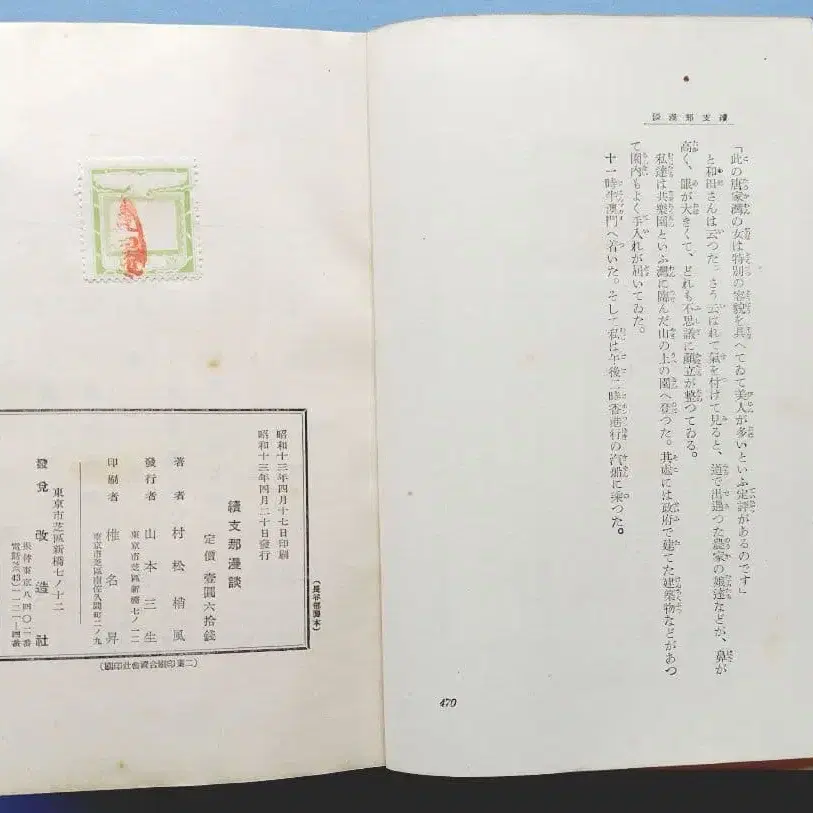 續支那漫談
「此の唐家灣の女は特別の容貌を具へてゐて美人が多いといふ定評があるのです」
と和田さんは云つた。さう云はれて氣を付けて見ると、道で出遇つた農家の娘達などが、鼻が
高く、眼が大きくて、どれも不思議に顏立が整つてゐる。
私達は共樂園といふ灣に臨んだ山の上の園へ登つた。其處には政府で建てた建築物などがあつ
て園內もよく手入れが屆いてゐた。
十一時半澳門へ着いた。そして私は午後二時香港行の汽船に乘つた。
470
昭和十三年四月十七日印刷
昭和十三年四月二十日發行
續支那漫談
定價 壹圓六拾錢
著者 村松梢風
發行者 山本三生
東京市芝區新橋七ノ一二
印刷者 椎名昇
東京市芝區南佐久間町二ノ九
東京市芝區新橋七ノ十二
發兌 改造社
振替東京八四〇二番